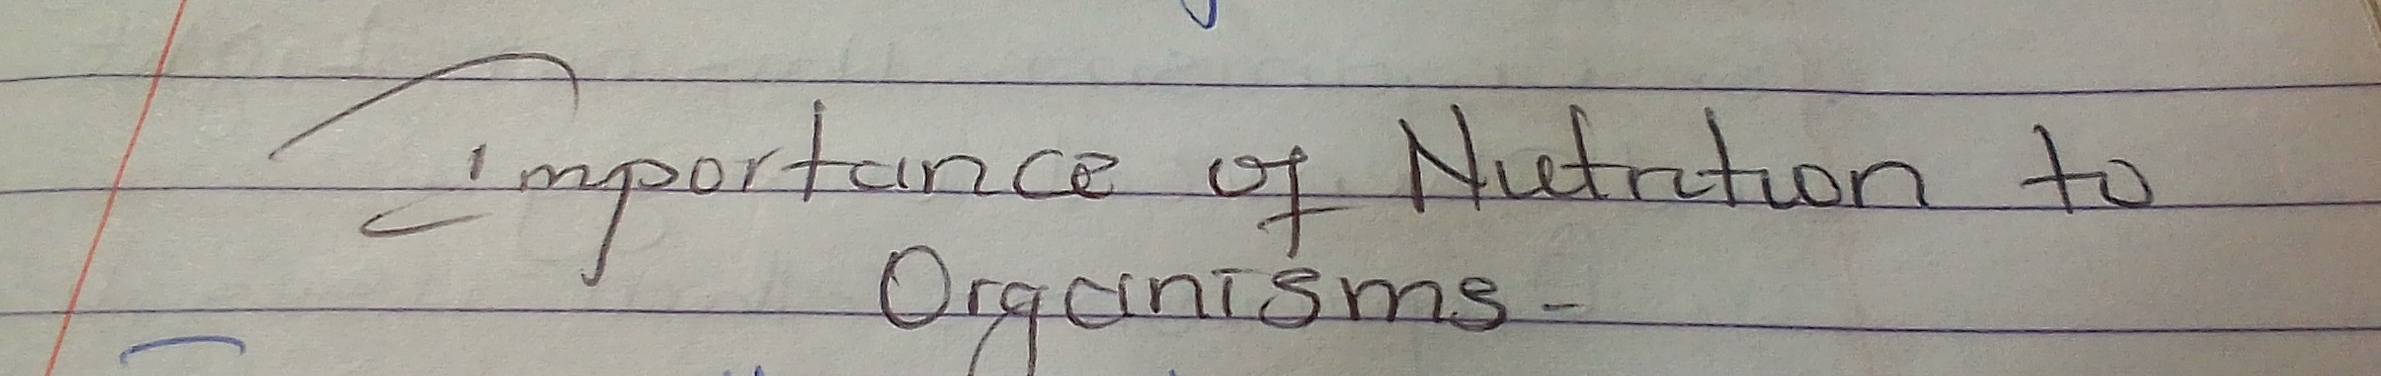 importance of Nutrition to
Organisms -